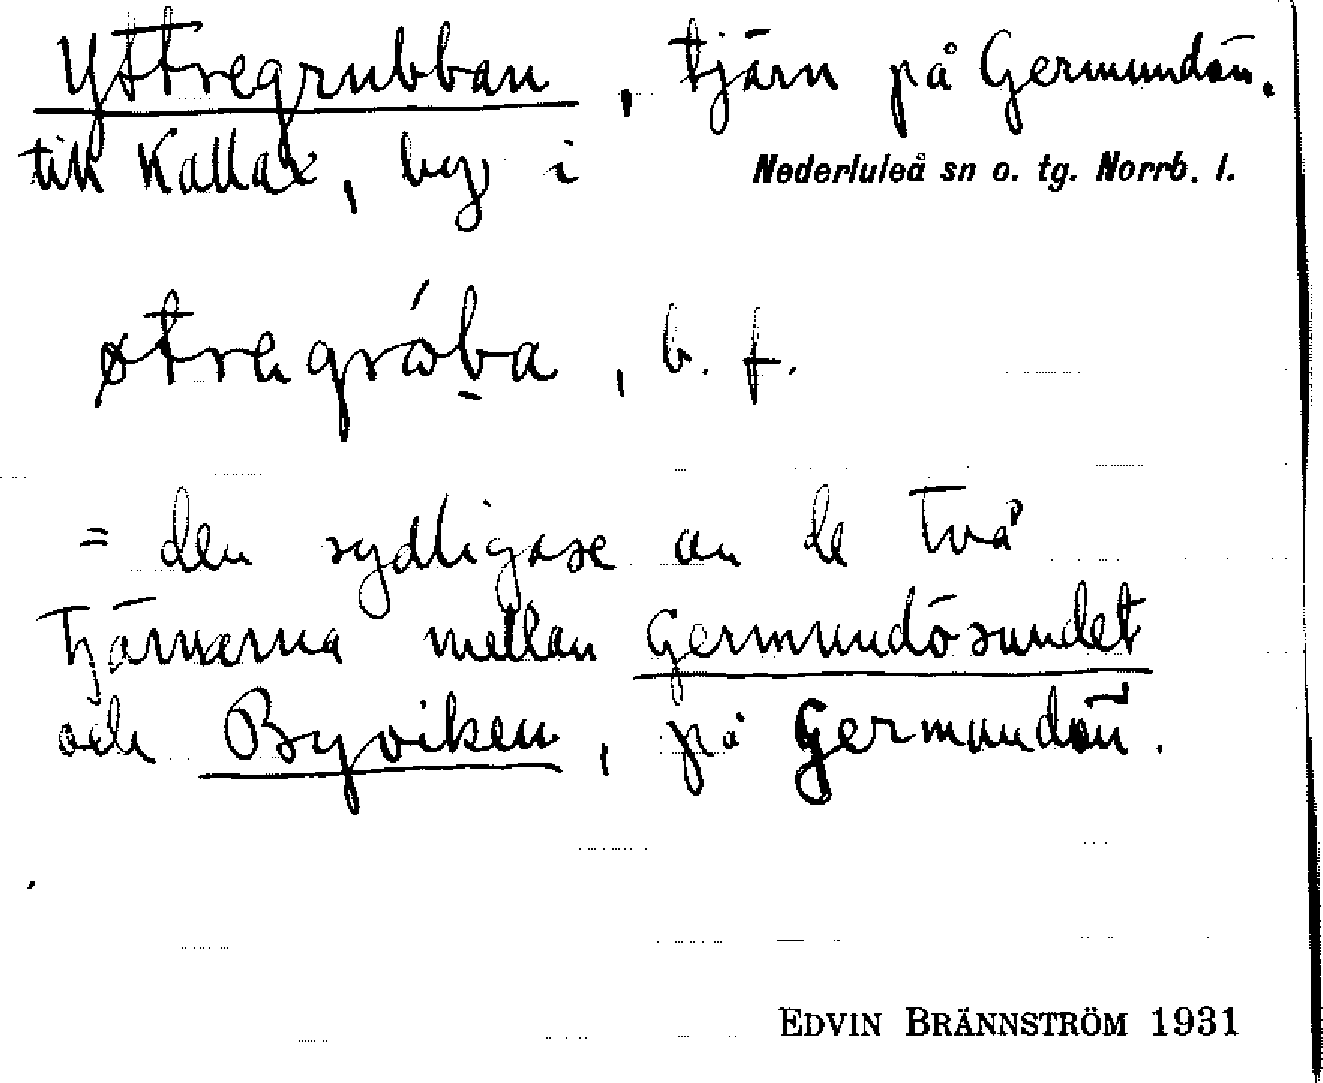 Yttregrubban, tjärn på Germundön.
till Kallax, by i Nederluleå sn o. tg. Norrb. l.
øtregrɷ́ba, b. f.
= den sydligase av de två
tjärnarna mellan Germundösundet
och Byviken, på Germundön.
EDVIN BRÄNNSTRÖM 1931